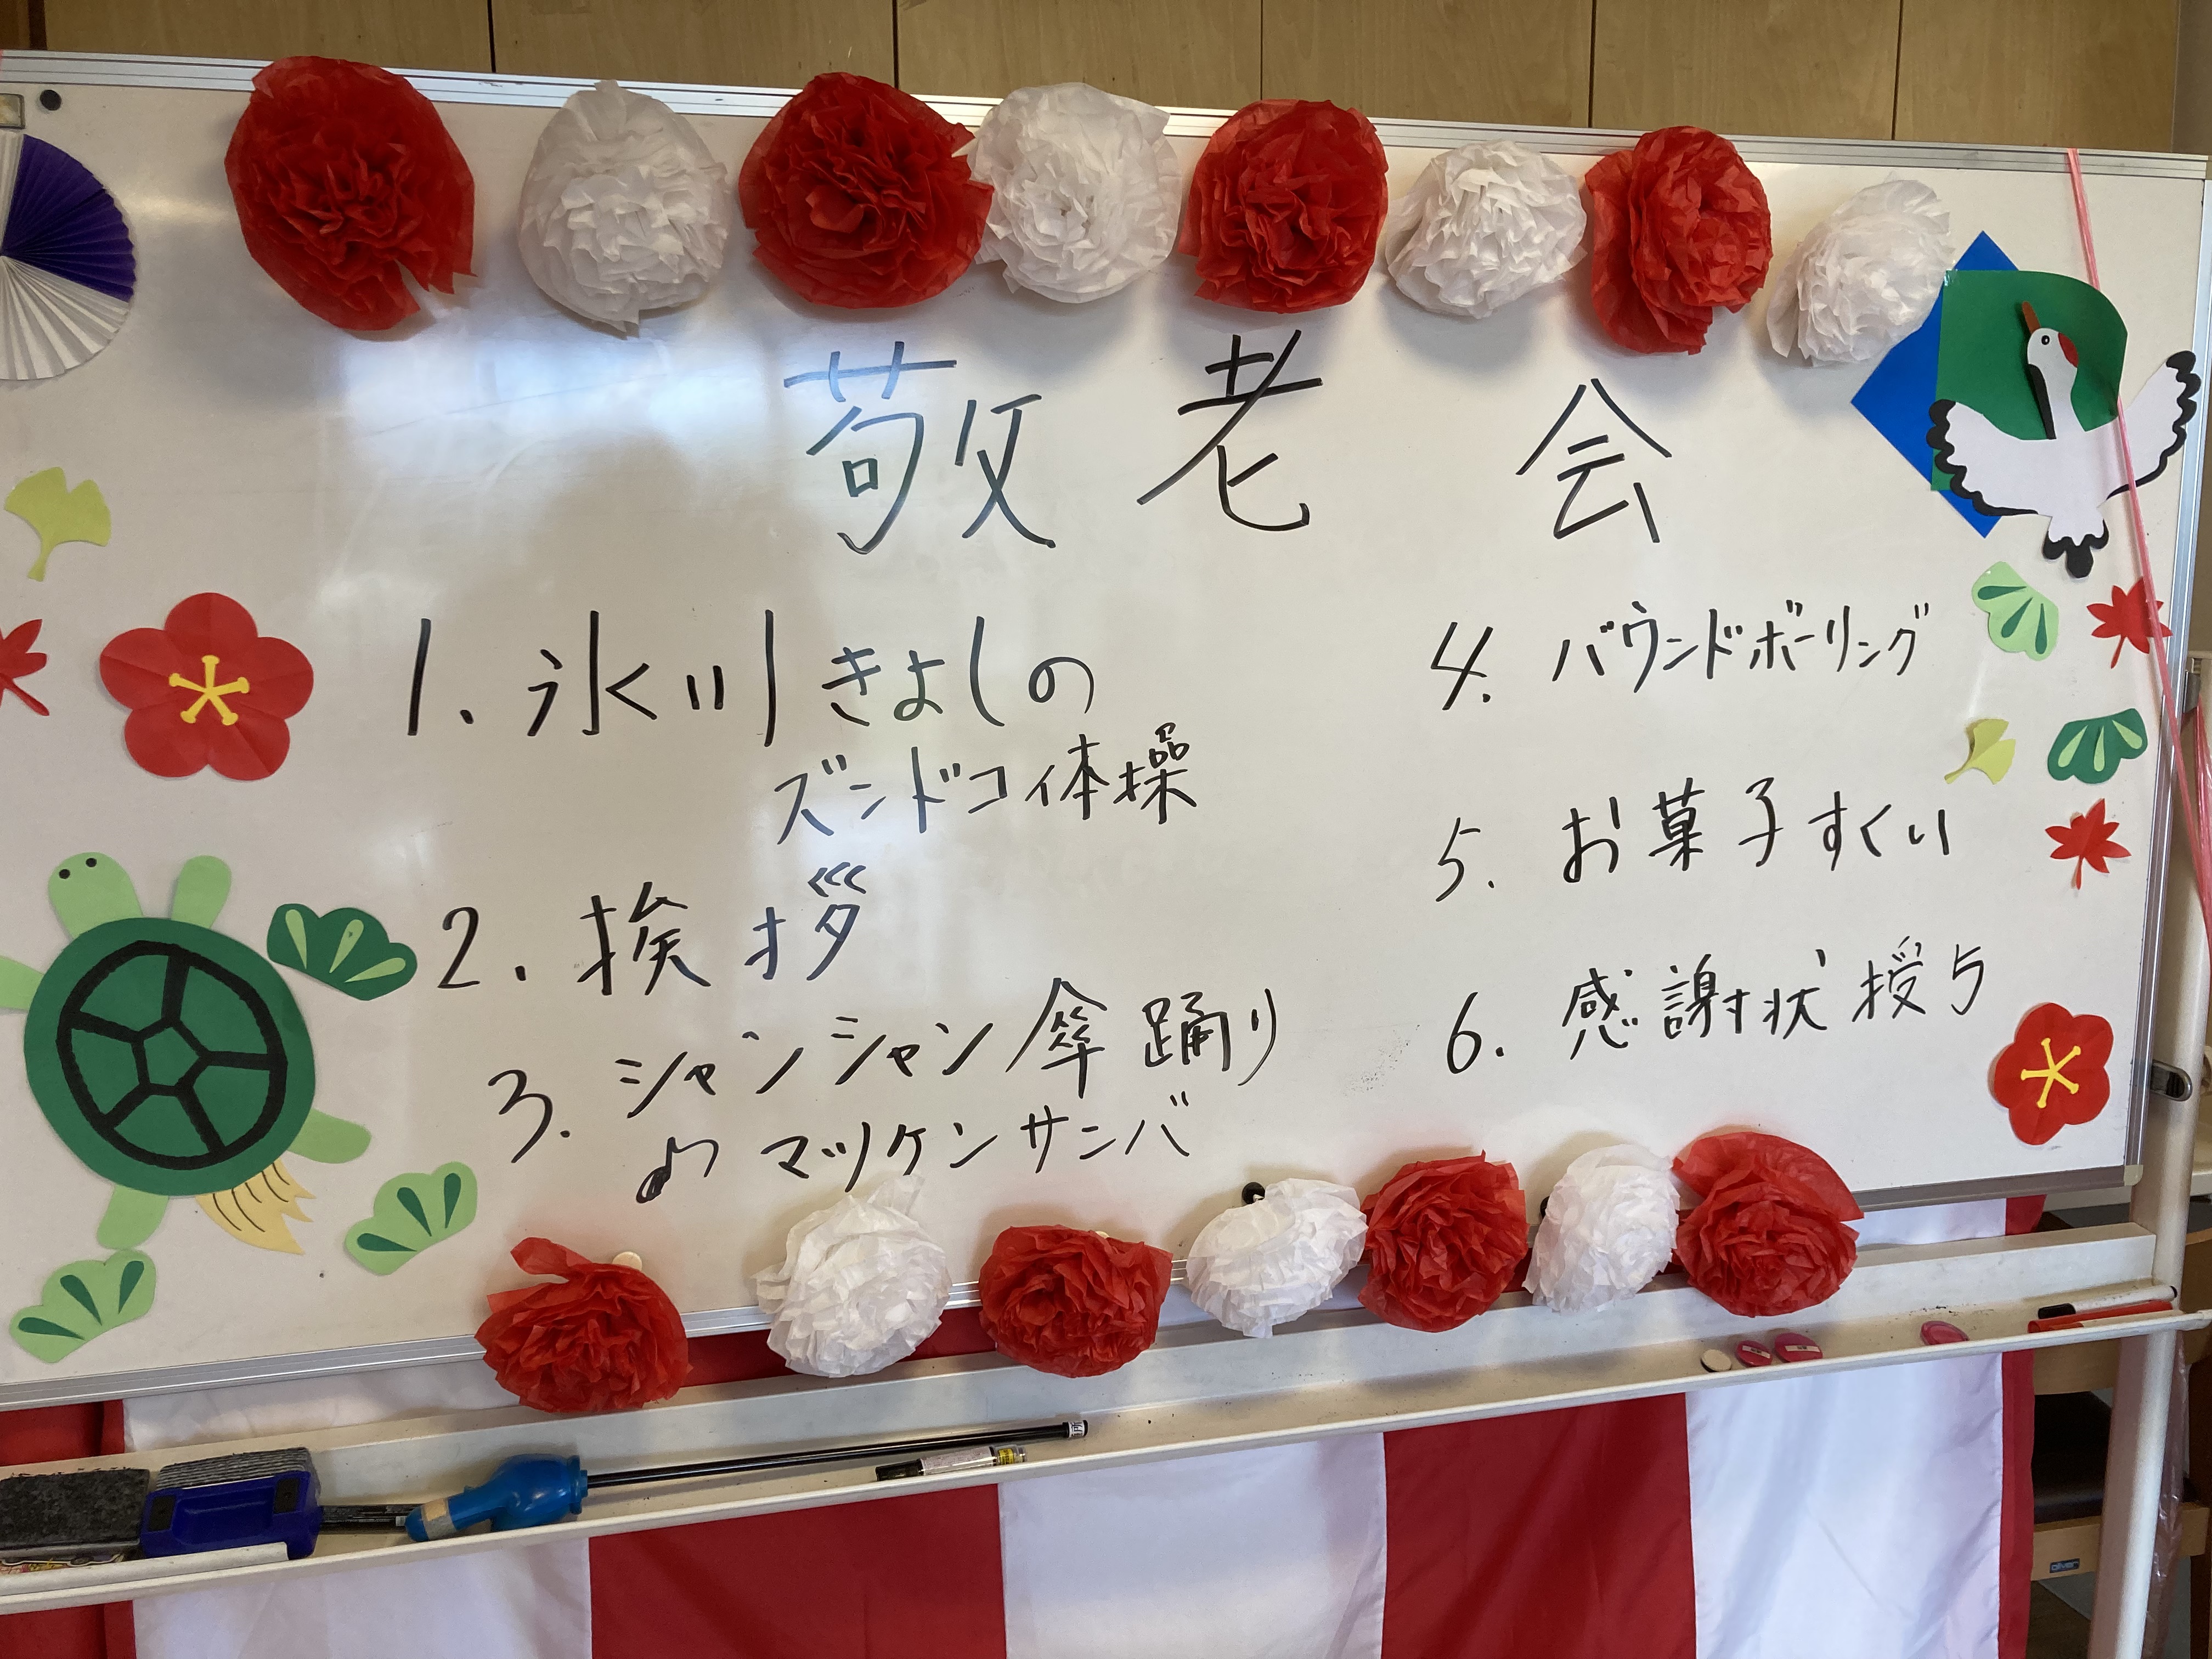 敬老会
1. 氷川きよしの
ズンドコ体操
2. 挨拶
3. シャンシャン傘踊り
♫ マツケンサンバ
4. バウンドボーリング
5. お菓子すくい
6. 感謝状授与